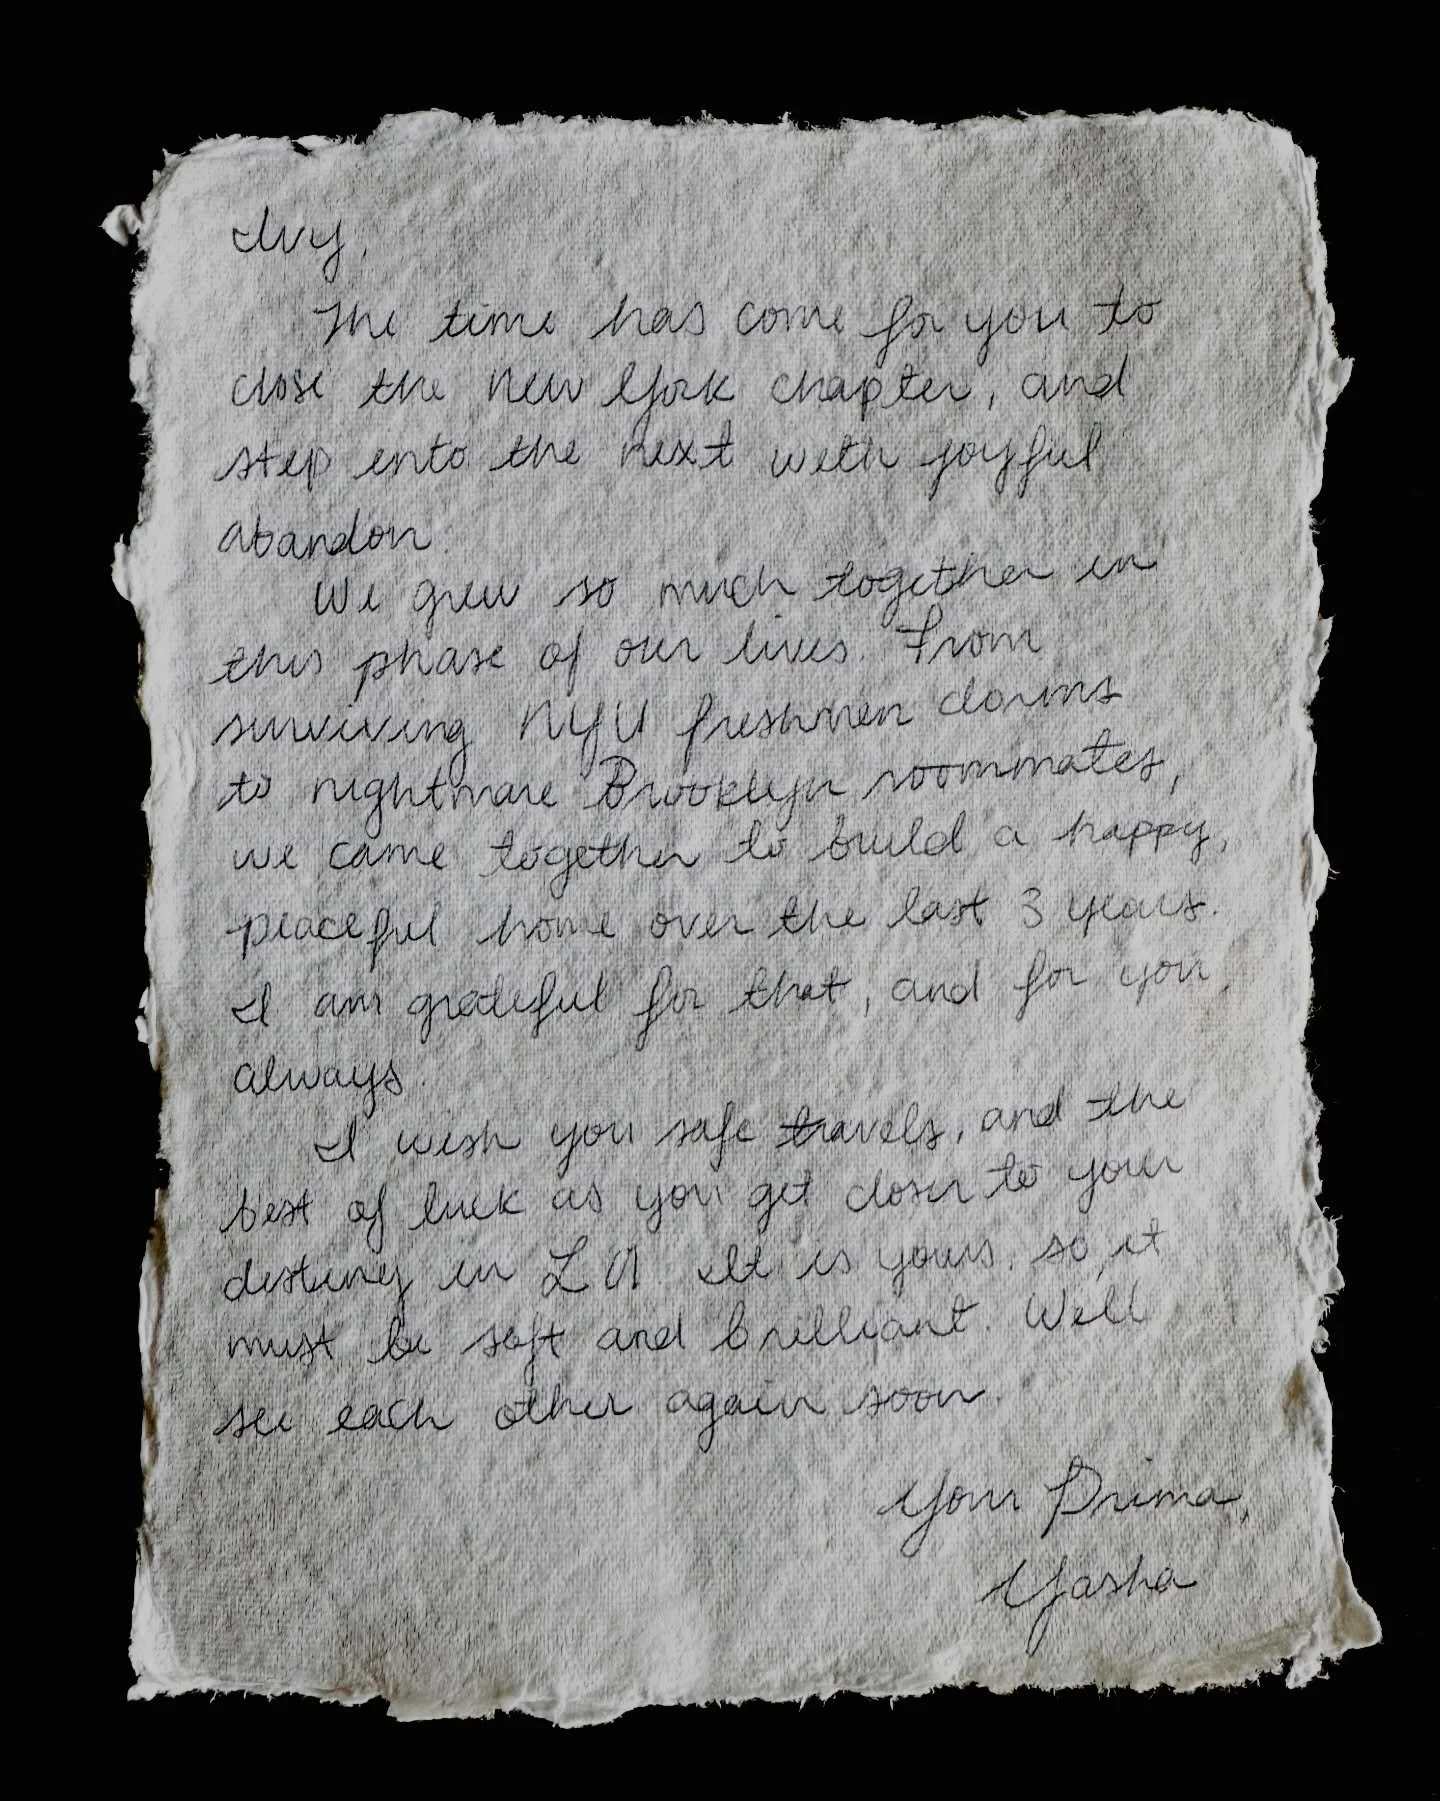 Ivy,
The time has come for you to
close the New York chapter, and
step into the next with joyful
abandon.
We grew so much together in
this phase of our lives. From
surviving NYU freshmen dorms
to nightmare Brooklyn roommates,
we came together to build a happy,
peaceful home over the last 3 years.
I am grateful for that, and for you,
always.
I wish you safe travels, and the
best of luck as you get closer to your
destiny in LA. It is yours. so, it
must be soft and brilliant. We'll
see each other again soon.
Your Prima,
Yasha